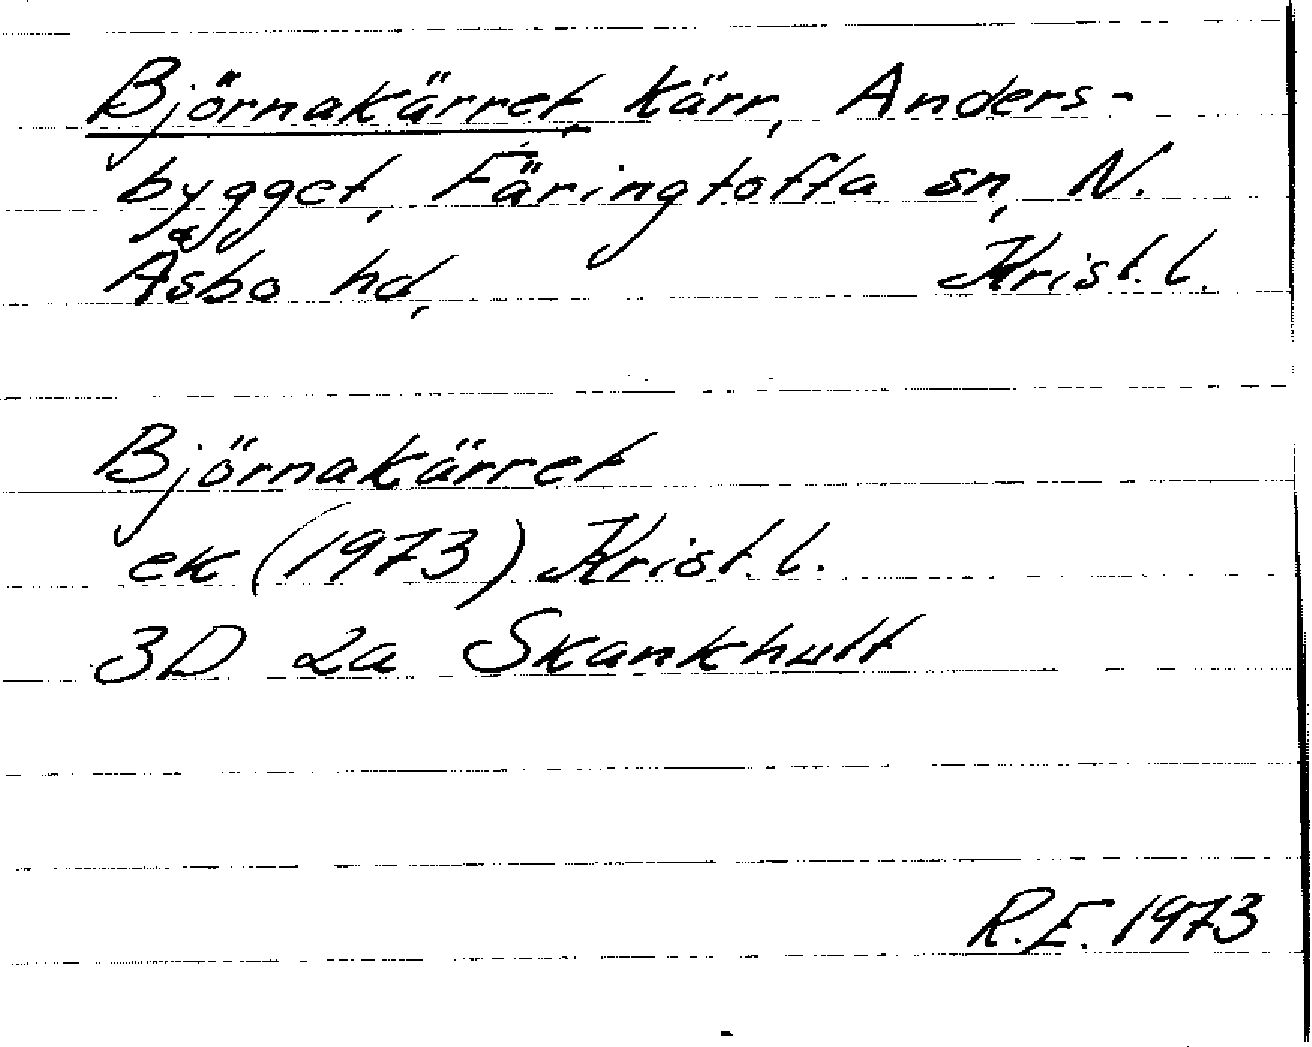 Björnakärret, kärr, Anders-
bygget, Färingtofta sn, N.
Åsbo hd, Krist. l.
Björnakärret
ek (1973) Krist. l.
3D 2a Skankhult
R.E. 1973